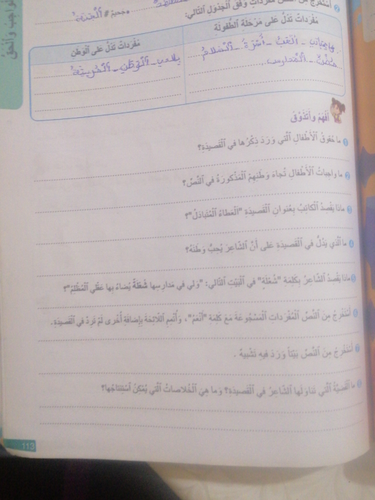 استخرج من النص مفردات وفق الجدول التالي:
مفردات تدل على مرحلة الطفولة
مفردات تدل على الوطن
اللعب - أسرة - السلام
المدارس
بلادي - الوطن - الحرية
أفهم وأتذوق
1 ما حقوق الأطفال التي ورد ذكرها في القصيدة؟
2 ما واجبات الأطفال تجاه وطنهم المذكورة في النص؟
3 ماذا يقصد الكاتب بعنوان القصيدة "العطاء المتبادل"؟
4 ما الذي يدل في القصيدة على أن الشاعر يحب وطنه؟
5 ماذا يقصد الشاعر بكلمة "شعلة" في البيت التالي: "ولي في مدارسها شعلة يضاء بها عقلي المظلم"؟
6 أستخرج من النص المفردات المسجوعة مع كلمة "أنعم"، وأتمم اللائحة بإضافة أخرى لم ترد في القصيدة.
7 أستخرج من النص بيتا ورد فيه تشبيه.
8 ما القضية التي تناولها الشاعر في القصيدة؟ وما هي الخلاصات التي يمكن استنتاجها؟
113